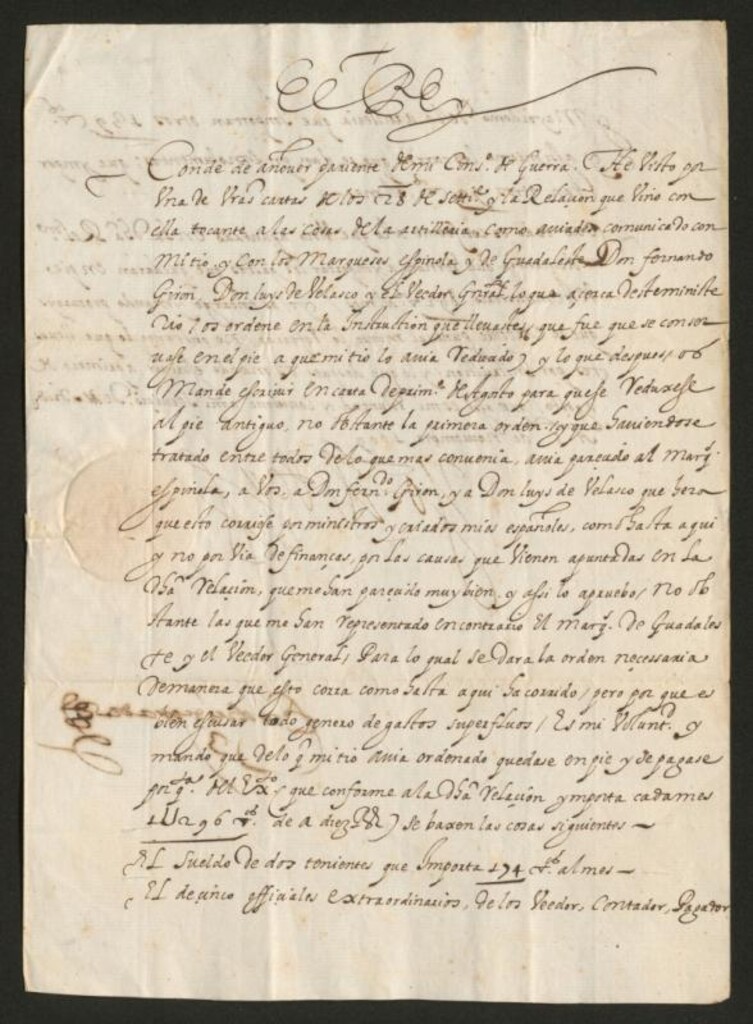 El Rey
Conde de añover pariente de mi Cons.º de Guerra. He Visto por
Una de Vras cartas de los 28 de settiᵉ y la Relacion que Vino con
ella tocante a las cosas de la artilleria, como auiades comunicado con
Mi tio, y con los Marqueses espinola y de Guadaleste Don fernando
Giron, Don luys de Velasco y el Veedor Gñral, lo que açerca deste ministe
rio os ordene en la Instruction que lleuastes, que fue que se conser
uase en el pie a que mi tio lo auia Reduzido, y lo que despues os
Mande escriuir en carta de prim.º de Agosto para que se Reduxese
al pie antiguo, no obstante la primera orden, y que hauiendose
tratado entre todos de lo que mas conuenia, auia pareçido al Marq.
espinola, a Vos, a Don fern.do Giron, y a Don luys de Velasco que hera
que esto corriese por ministros y criados mios españoles, como hasta aqui
y no por Via de finanças, por las causas que Vienen apuntadas en la
dha Relaçion, que me han pareçido muy bien, y assi lo apruebo, no ob
stante las que me han representado en contrario el Marq. de Guadales
te y el Veedor General, Para lo qual se dara la orden necessaria
de manera que esto corra como hasta aqui ha corrido, pero por que es
bien escusar todo genero de gastos superfluos, Es mi Volunt.d y
mando que de lo q mi tio auia ordenado quedase en pie y se pagase
por q.ta del Ex.to, que conforme a la dha Relaçion ymporta cada mes
1U296 de a diez Rs) se baxen las cosas siguientes
El sueldo de dos tenientes que Importa 174 al mes
El de çinco offiçiales extraordinarios, de los Veedor, Contador, Pagador